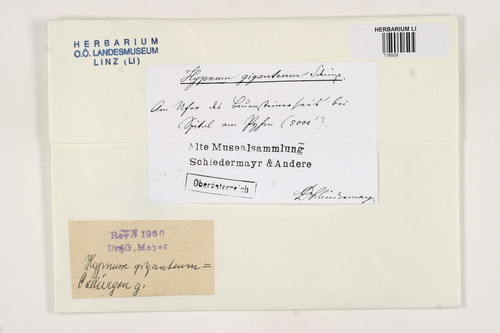 HERBARIUM
O.Ö. LANDESMUSEUM
LINZ (LI)
HERBARIUM LI
Hypnum giganteum Schimp.
Am Ufer des bei
Spital am Pyhrn (5000').
Alte Musealsammlung
Schiedermayr & Andere
Oberösterreich
Dr Schiedermayr
Rev. 1960
Dr. G. Mayer
Hypnum giganteum =
Calliergon g.